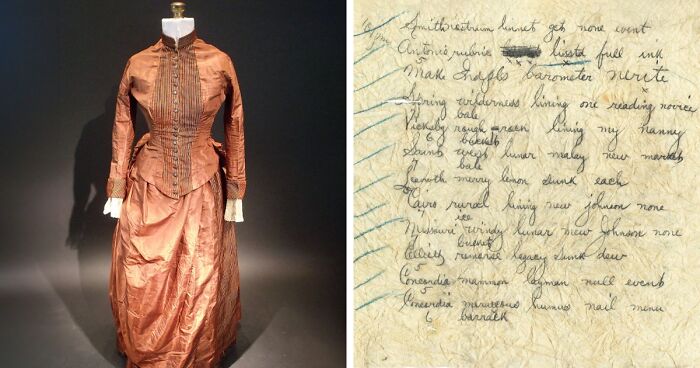 Smith nostrum linnet gets none event
Antonio rubric lissta full ink
5
Make Indpls barometer nerite
Spring wilderness lining one reading novice
bale
Vicksbg rough rack lining my nanny
6 bucket
Saints west lunar malay new market
7 bale
Leavwth merry lemon sunk each
Cairo rural lining new johnson none
7 ice
Missouri windy lunar new Johnson none
bucket
Elliott removal legacy sunk dew
Concordia mammon layman null events
5
Concordia merraccous humus nail menu
6 barrack